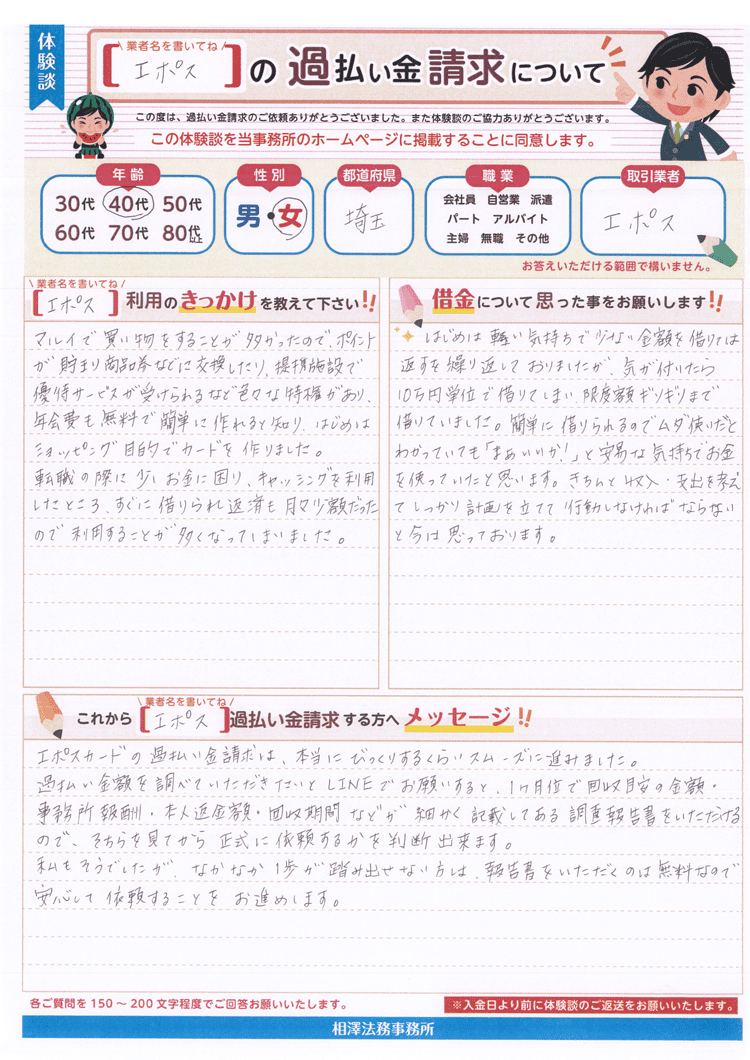 体験談
業者名を書いてね
[エポス]の過払い金請求について
この度は、過払い金請求のご依頼ありがとうございました。また体験談のご協力ありがとうございます。
この体験談を当事務所のホームページに掲載することに同意します。
年齢
30代 40代 50代
60代 70代 80代以上
性別
男・女
都道府県
埼玉
職業
会社員 自営業 派遣
パート アルバイト
主婦 無職 その他
取引業者
エポス
お答えいただける範囲で構いません。
業者名を書いてね
[エポス]利用のきっかけを教えて下さい!!
マルイで買い物をすることが多かったので、ポイント
が貯まり商品券などに交換したり、提携施設で
優待サービスが受けられるなど色々な特権があり、
年会費も無料で簡単に作れると知り、はじめは
ショッピング目的でカードを作りました。
転職の際に少しお金に困り、キャッシングを利用
したところ、すぐに借りられ返済も月々少額だった
ので利用することが多くなってしまいました。
借金について思った事をお願いします!!
はじめは軽い気持ちで少ない金額を借りては
返すを繰り返しておりましたが、気が付いたら
10万円単位で借りてしまい、限度額ギリギリまで
借りていました。簡単に借りられるのでムダ使いだと
わかっていても「まぁいいか!」と安易な気持ちでお金
を使っていたと思います。きちんと収入・支出を考え
てしっかり計画を立てて行動しなければならない
と今は思っております。
業者名を書いてね
これから[エポス]過払い金請求する方へメッセージ!!
エポスカードの過払い金請求は、本当にびっくりするくらいスムーズに進みました。
過払い金額を調べていただきたいとLINEでお願いすると、1ヶ月位で回収目安の金額・
事務所報酬・本人返金額・回収期間などが細かく記載してある調査報告書をいただける
ので、そちらを見てから正式に依頼するかを判断出来ます。
私もそうでしたが、なかなか1歩が踏み出せない方は、報告書をいただくのは無料なので
安心して依頼することをお進めします。
各ご質問を150〜200文字程度でご回答お願いいたします。
※入金日より前に体験談のご返送をお願いいたします。
相澤法務事務所